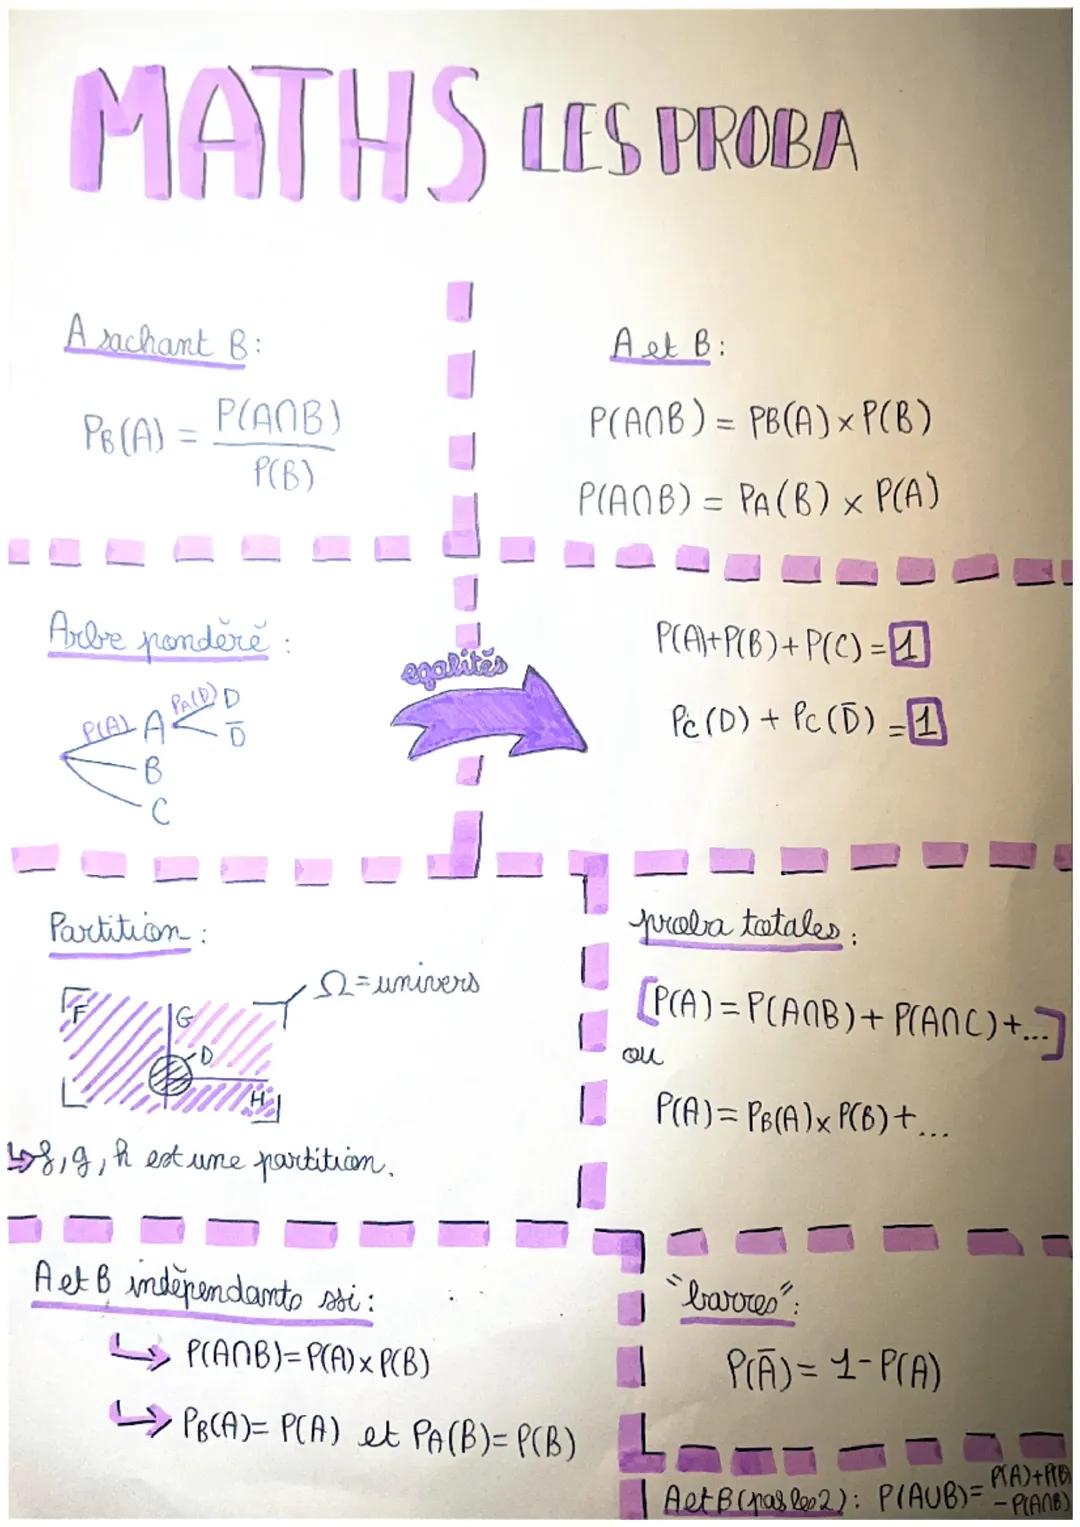 MATHS LES PROBA
A sachant B:
P_B(A) = P(A∩B)
P(B)
A et B:
P(A∩B) = PB(A) × P(B)
P(A∩B) = PA(B) × P(A)
Arbre pondéré :
P(A) A PA(D) D
D̄
B
C
egalités
P(A)+P(B)+P(C) = 1
Pc(D) + Pc(D̄) = 1
Partition :
Ω = univers
F G
D
H
↳ f, g, h est une partition.
proba totales :
[P(A) = P(A∩B) + P(A∩C) +...]
ou
P(A) = PB(A) × P(B) + ...
A et B indépendants ssi :
↳ P(A∩B) = P(A) × P(B)
↳ PB(A) = P(A) et PA(B) = P(B)
"barres" :
P(Ā) = 1 - P(A)
A et B (pas les 2) : P(A∪B) = P(A)+P(B)
- P(A∩B)